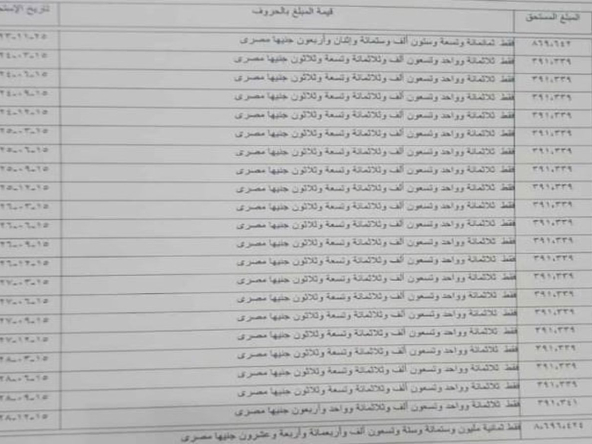 المبلغ المستحق قيمة المبلغ بالحروف تاريخ الإستح
٨٦٩،٦٤٢ فقط ثمانمائة وتسعة وستون ألف وستمائة وإثنان وأربعون جنيها مصرى ٢٣-١١-٢٥
٣٩١،٣٣٩ فقط ثلاثمائة وواحد وتسعون ألف وثلاثمائة وتسعة وثلاثون جنيها مصرى ٢٤-٠٣-١٥
٣٩١،٣٣٩ فقط ثلاثمائة وواحد وتسعون ألف وثلاثمائة وتسعة وثلاثون جنيها مصرى ٢٤-٠٦-١٥
٣٩١،٣٣٩ فقط ثلاثمائة وواحد وتسعون ألف وثلاثمائة وتسعة وثلاثون جنيها مصرى ٢٤-٠٩-١٥
٣٩١،٣٣٩ فقط ثلاثمائة وواحد وتسعون ألف وثلاثمائة وتسعة وثلاثون جنيها مصرى ٢٤-١٢-١٥
٣٩١،٣٣٩ فقط ثلاثمائة وواحد وتسعون ألف وثلاثمائة وتسعة وثلاثون جنيها مصرى ٢٥-٠٣-١٥
٣٩١،٣٣٩ فقط ثلاثمائة وواحد وتسعون ألف وثلاثمائة وتسعة وثلاثون جنيها مصرى ٢٥-٠٦-١٥
٣٩١،٣٣٩ فقط ثلاثمائة وواحد وتسعون ألف وثلاثمائة وتسعة وثلاثون جنيها مصرى ٢٥-٠٩-١٥
٣٩١،٣٣٩ فقط ثلاثمائة وواحد وتسعون ألف وثلاثمائة وتسعة وثلاثون جنيها مصرى ٢٥-١٢-١٥
٣٩١،٣٣٩ فقط ثلاثمائة وواحد وتسعون ألف وثلاثمائة وتسعة وثلاثون جنيها مصرى ٢٦-٠٣-١٥
٣٩١،٣٣٩ فقط ثلاثمائة وواحد وتسعون ألف وثلاثمائة وتسعة وثلاثون جنيها مصرى ٢٦-٠٦-١٥
٣٩١،٣٣٩ فقط ثلاثمائة وواحد وتسعون ألف وثلاثمائة وتسعة وثلاثون جنيها مصرى ٢٦-٠٩-١٥
٣٩١،٣٣٩ فقط ثلاثمائة وواحد وتسعون ألف وثلاثمائة وتسعة وثلاثون جنيها مصرى ٢٦-١٢-١٥
٣٩١،٣٣٩ فقط ثلاثمائة وواحد وتسعون ألف وثلاثمائة وتسعة وثلاثون جنيها مصرى ٢٧-٠٣-١٥
٣٩١،٣٣٩ فقط ثلاثمائة وواحد وتسعون ألف وثلاثمائة وتسعة وثلاثون جنيها مصرى ٢٧-٠٦-١٥
٣٩١،٣٣٩ فقط ثلاثمائة وواحد وتسعون ألف وثلاثمائة وتسعة وثلاثون جنيها مصرى ٢٧-٠٩-١٥
٣٩١،٣٣٩ فقط ثلاثمائة وواحد وتسعون ألف وثلاثمائة وتسعة وثلاثون جنيها مصرى ٢٧-١٢-١٥
٣٩١،٣٣٩ فقط ثلاثمائة وواحد وتسعون ألف وثلاثمائة وتسعة وثلاثون جنيها مصرى ٢٨-٠٣-١٥
٣٩١،٣٣٩ فقط ثلاثمائة وواحد وتسعون ألف وثلاثمائة وتسعة وثلاثون جنيها مصرى ٢٨-٠٦-١٥
٣٩١،٣٣٩ فقط ثلاثمائة وواحد وتسعون ألف وثلاثمائة وتسعة وثلاثون جنيها مصرى ٢٨-٠٩-١٥
٣٩١،٣٤١ فقط ثلاثمائة وواحد وتسعون ألف وثلاثمائة وواحد وأربعون جنيها مصرى ٢٨-١٢-١٥
٨،٦٩٦،٤٢٤ فقط ثمانية مليون وستمائة وستة وتسعون ألف وأربعمائة وأربعة وعشرون جنيها مصرى